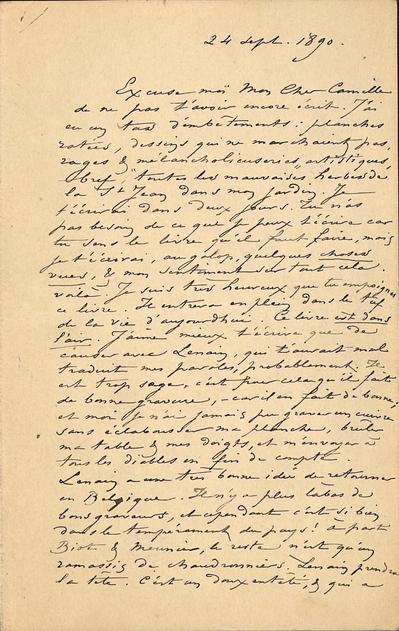 24 sept. 1890.
Excuse moi Mon Cher Camille
de ne pas t'avoir encore écrit. J'ai
eu un tas d'embêtements : planches
ratées, dessins qui ne marchaient pas,
rages & mélancolicuseries "artistiques,
bref, "toutes les mauvaises herbes de
la St Jean dans mon jardin. Je
t'écrirai dans deux jours. Tu n'as
pas besoin de ce que je peux t'écrire car
tu sens le livre qu'il faut faire, mais
je t'écrirai, au galop, quelques choses
vues, & mon sentiment sur tout cela.
voilà. Je suis très heureux que tu empoignes
ce livre. Il entrera en plein dans le tuf
de la vie d'aujourdhui. Ce livre est dans
l'air. J'aime mieux t'écrire que de
causer avec Lenain, qui t'aurait mal
traduit mes paroles, probablement. Il
est trop sage, c'est pour cela qu'il fait
de bonne gravure, – car il en fait de bonne,
et moi je n'ai jamais pu graver un cuivre
sans éclabousser ma planche, brûler
ma table & mes doigts, et m'envoyer à
tous les diables en fin de compte.
Lenain a une très bonne idée de retourner
en Belgique. Il n'y a plus là bas de
bons graveurs, et cependant c'est si bien
dans le tempérament du pays ! à part
Biot & Meunier, le reste n'est qu'un
ramassis de chaudronniers. Lenain prendra
la tête. C'est un doux entêté, & qui a